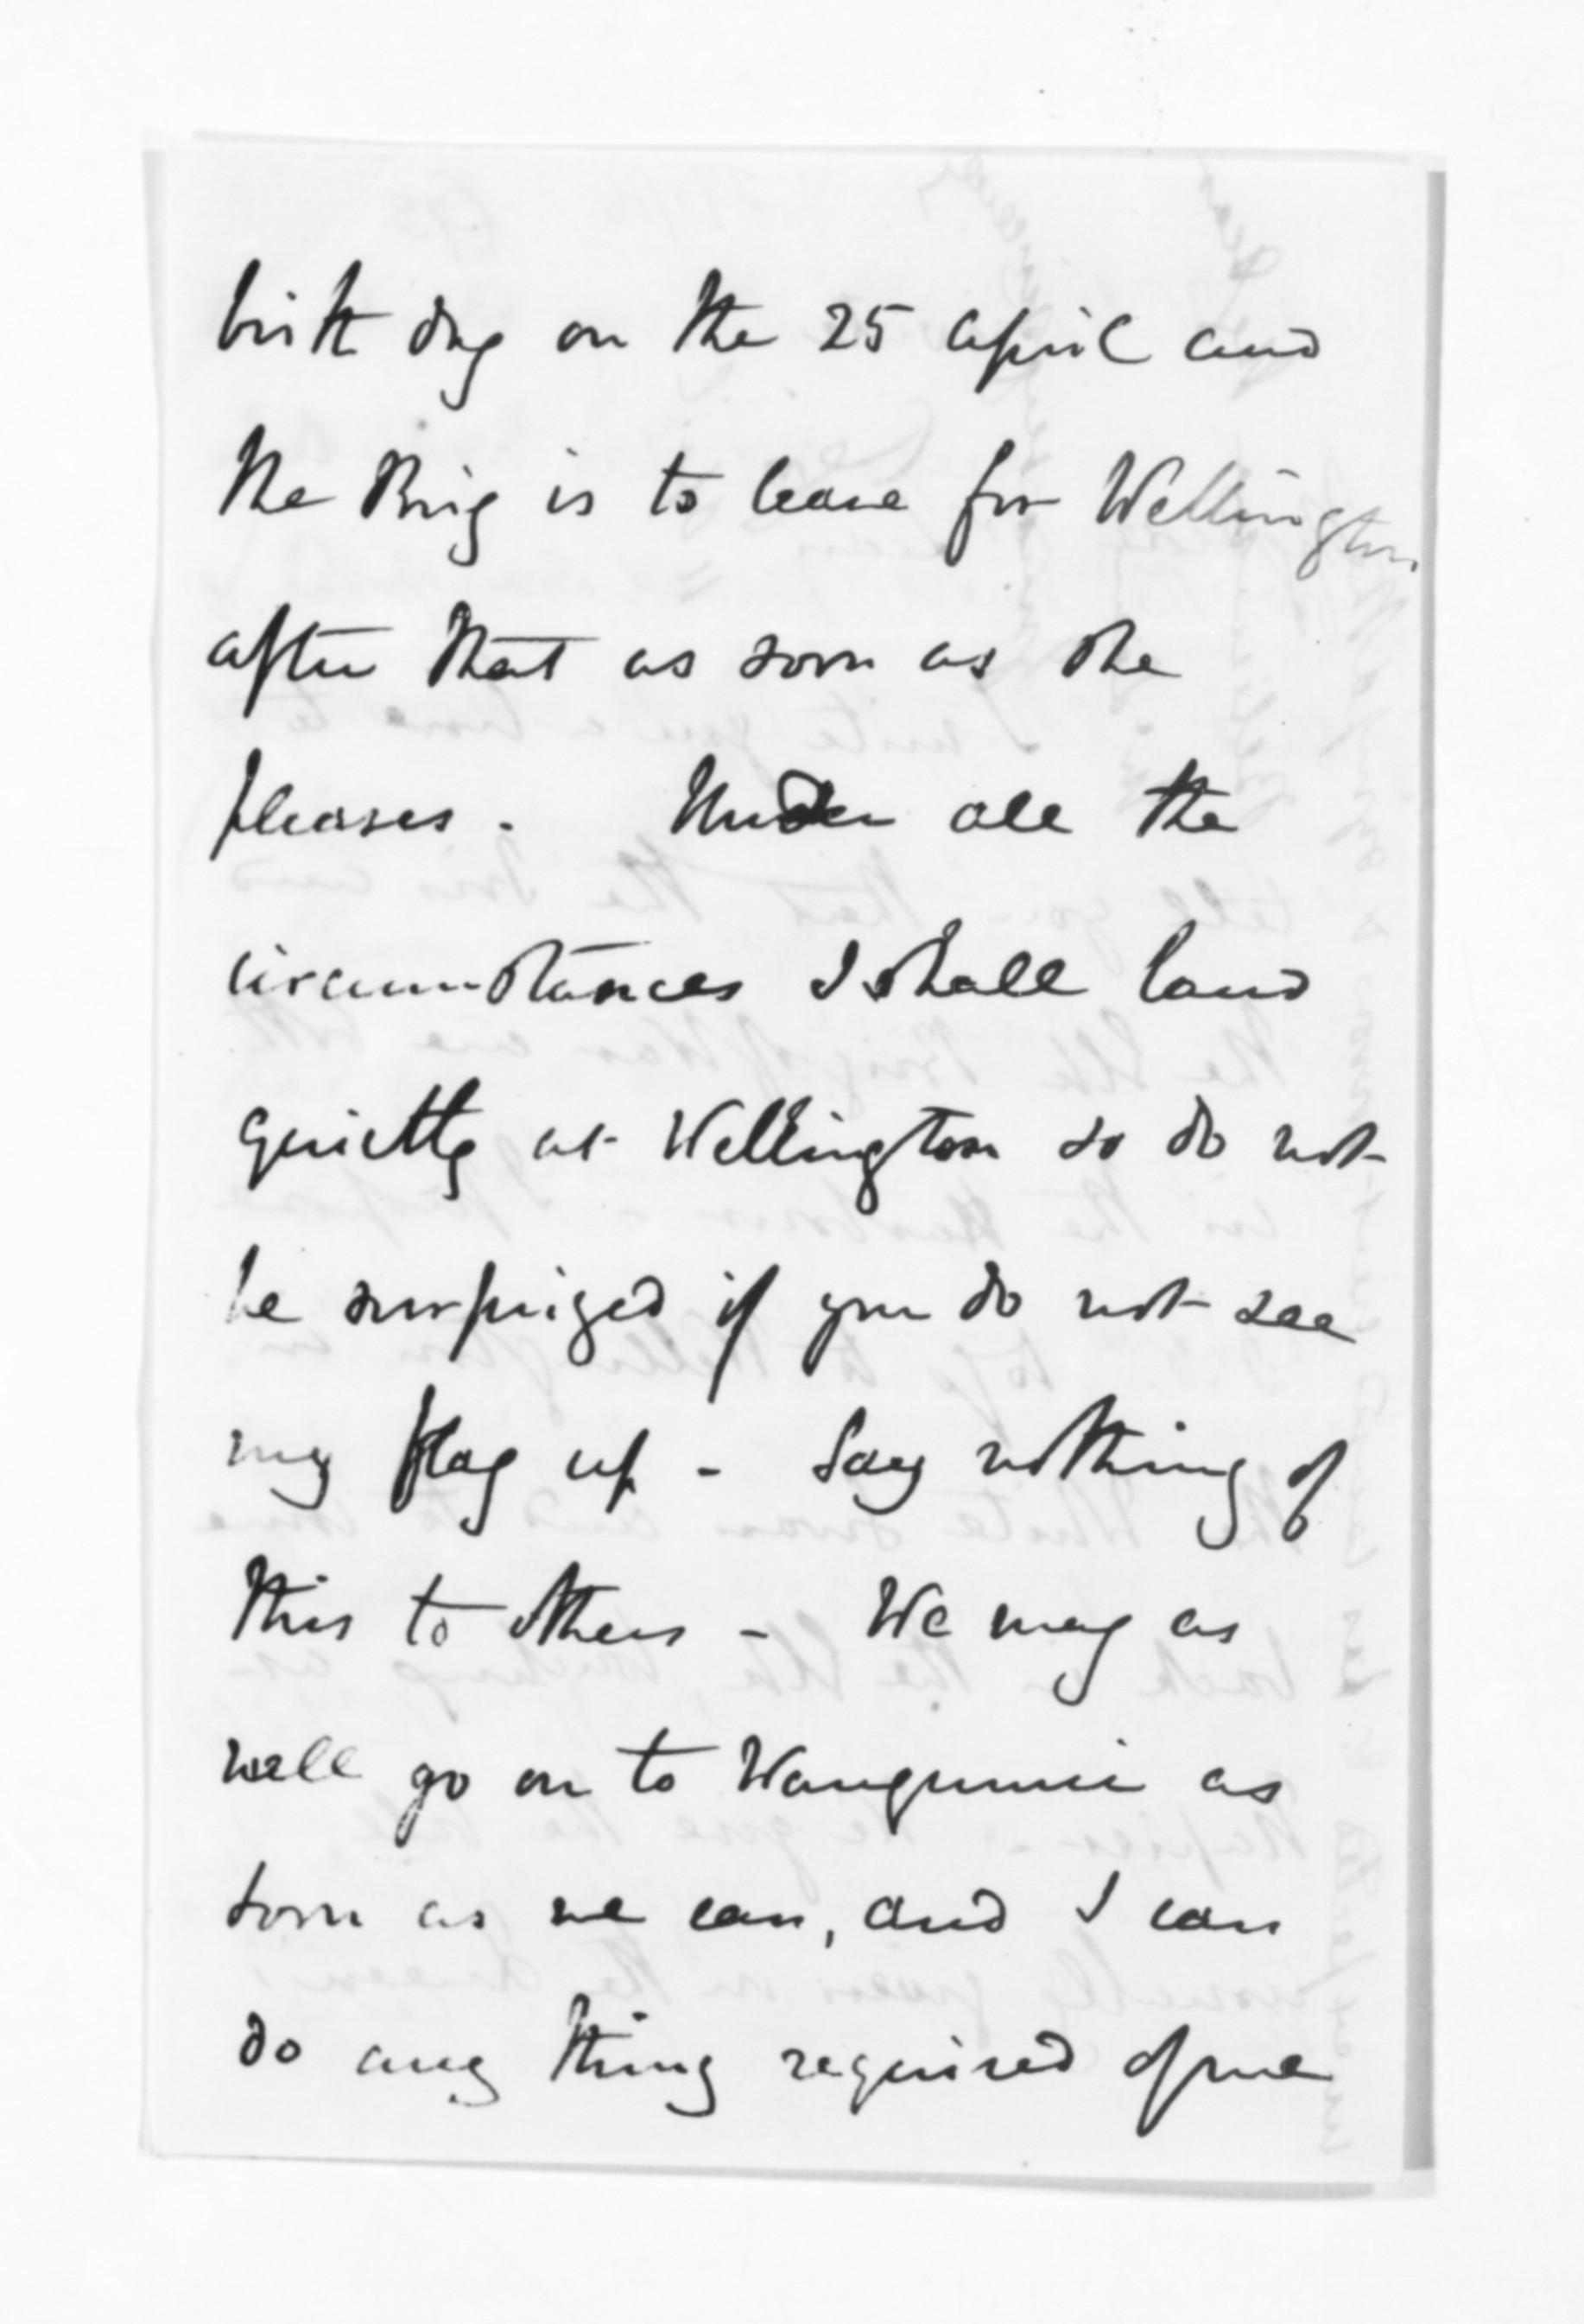 birth day on the 25 April and
the Brig is to leave for Wellington
after that as soon as she
pleases. Under all the
circumstances I shall land
quietly at Wellington so do not
be surprized if you do not see
my flag up - Say nothing of
this to others - We may as
well go on to Wanganui as
soon as we can, and I can
do any thing required of me